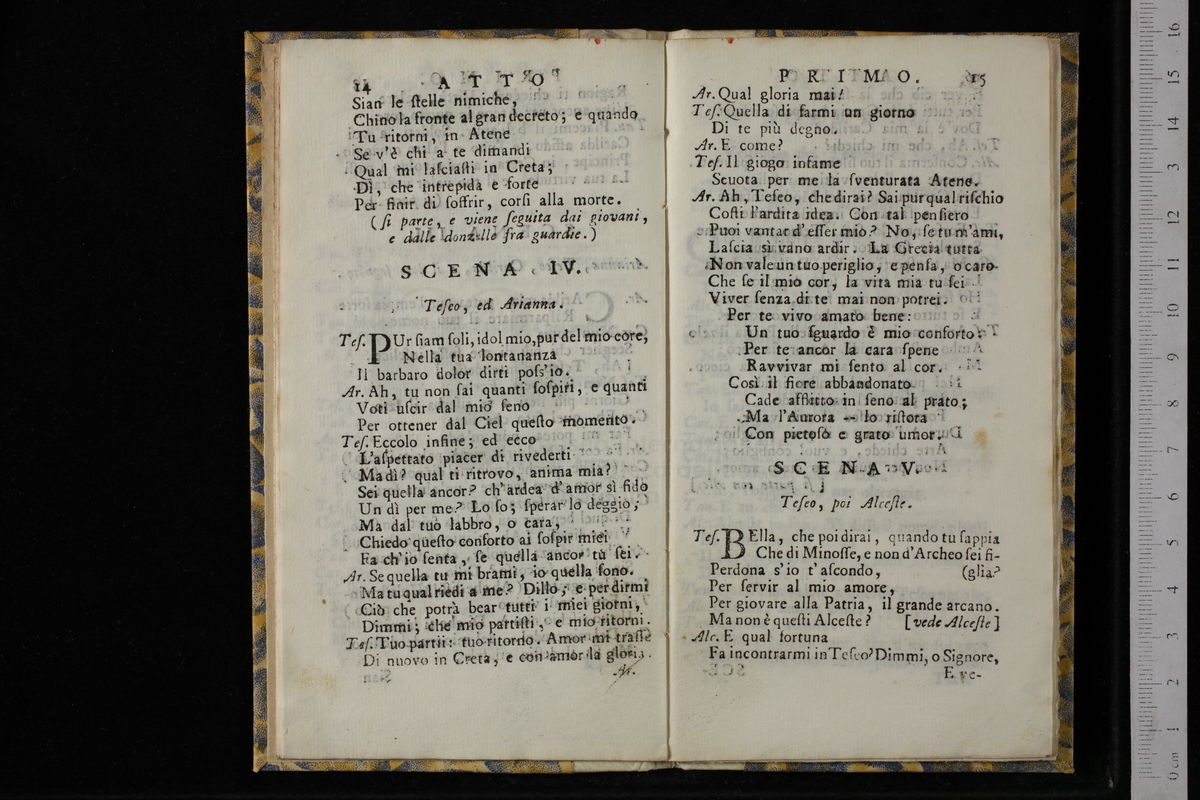 14 ATTO
Sian le ſtelle nimiche,
Chino la fronte al gran decreto; e quando
Tu ritorni, in Atene
Se v'è chi a te dimandi
Qual mi laſciaſti in Creta;
Dì, che intrepida e forte
Per finir di ſoffrir, corſi alla morte.
(ſi parte, e viene ſeguita dai giovani,
e dalle donzelle fra guardie.)
SCENA IV.
Teſeo, ed Arianna.
Teſ. PUr ſiam ſoli, idol mio, pur del mio core,
Nella tua lontananza
Il barbaro dolor dirti poſs'io.
Ar. Ah, tu non ſai quanti ſoſpiri, e quanti
Voti uſcir dal mio ſeno
Per ottener dal Ciel queſto momento.
Teſ. Eccolo infine; ed ecco
L'aſpettato piacer di rivederti
Ma dì? qual ti ritrovo, anima mia?
Sei quella ancor? ch'ardea d'amor sì fido
Un dì per me? Lo ſo; ſperar lo deggio;
Ma dal tuo labbro, o cara,
Chiedo queſto conforto ai ſoſpir miei
Fa ch'io ſenta, ſe quella ancor tu ſei.
Ar. Se quella tu mi brami, io quella ſono.
Ma tu qual riedi a me? Dillo; e per dirmi
Ciò che potrà bear tutti i miei giorni,
Dimmi; che mio partiſti, e mio ritorni.
Teſ. Tuo partii: tuo ritorno. Amor mi traſſe
Di nuovo in Creta, e con amor la gloria.
Ar.
PRIMO. 15
Ar. Qual gloria mai!
Teſ. Quella di farmi un giorno
Di te più degno.
Ar. E come?
Teſ. Il giogo infame
Scuota per me la ſventurata Atene.
Ar. Ah, Teſeo, che dirai? Sai pur qual riſchio
Coſti l'ardita idea. Con tal penſiero
Puoi vantar d'eſſer mio? No, ſe tu m'ami,
Laſcia sì vano ardir. La Grecia tutta
Non vale un tuo periglio, e penſa, o caro
Che ſe il mio cor, la vita mia tu ſei
Viver ſenza di te mai non potrei.
Per te vivo amato bene:
Un tuo ſguardo è mio conforto:
Per te ancor la cara ſpene
Ravvivar mi ſento al cor.
Così il fiore abbandonato
Cade afflitto in ſeno al prato;
Ma l'Aurora - lo riſtora
Con pietoſo e grato umor.
SCENA V.
Teſeo, poi Alceſte.
Teſ. BElla, che poi dirai, quando tu ſappia
Che di Minoſſe, e non d'Archeo ſei fi-
Perdona s'io t'aſcondo, (glia?
Per ſervir al mio amore,
Per giovare alla Patria, il grande arcano.
Ma non è queſti Alceſte? [vede Alceſte]
Alc. E qual fortuna
Fa incontrarmi in Teſeo? Dimmi, o Signore,
E ve-
0 cm 1 2 3 4 5 6 7 8 9 10 11 12 13 14 15 16